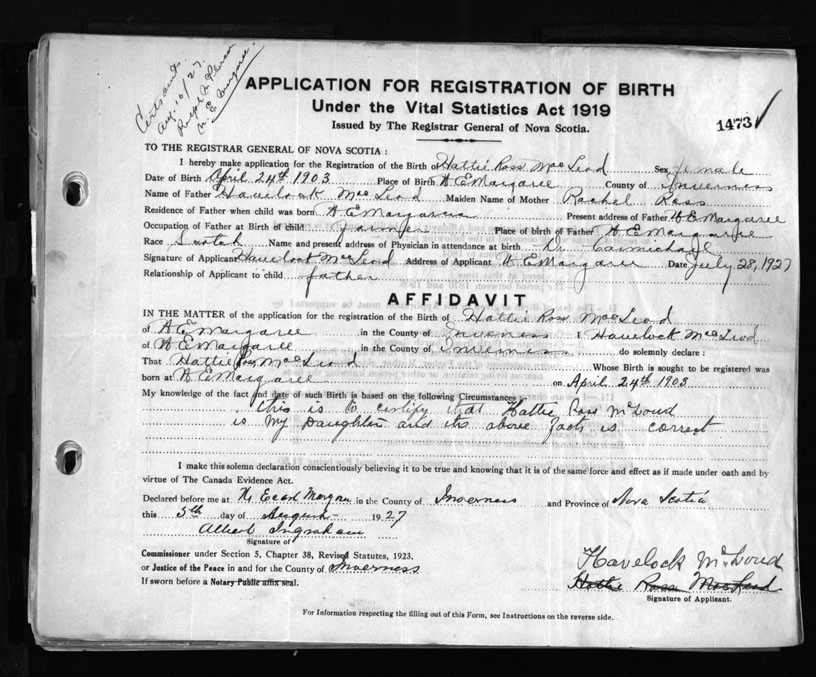 Aug. 10/27
N. E. Margaree
APPLICATION FOR REGISTRATION OF BIRTH
Under the Vital Statistics Act 1919
Issued by The Registrar General of Nova Scotia.
1473
TO THE REGISTRAR GENERAL OF NOVA SCOTIA :
I hereby make application for the Registration of the Birth of Hattie Ross MacLeod Sex Female
Date of Birth April 24th 1903 Place of Birth N E Margaree County of Inverness
Name of Father Havelock MacLeod Maiden Name of Mother Rachel Ross
Residence of Father when child was born N E Margaree Present address of Father N E Margaree
Occupation of Father at Birth of child Farmer Place of birth of Father N E Margaree
Race Scotch Name and present address of Physician in attendance at birth Dr Carmichael
Signature of Applicant Havelock McLeod Address of Applicant N E Margaree Date July 28, 1927
Relationship of Applicant to child father
AFFIDAVIT
IN THE MATTER of the application for the registration of the Birth of Hattie Ross MacLeod
of N E Margaree in the County of Inverness I Havelock MacLeod
of N E Margaree in the County of Inverness do solemnly declare :
That Hattie Ross MacLeod Whose Birth is sought to be registered was
born at N E Margaree on April 24th 1903
My knowledge of the fact and date of such Birth is based on the following Circumstances :
this is to certify that Hattie Ross McLoud
is my Daughter and the above facts is correct
I make this solemn declaration conscientiously believing it to be true and knowing that it is of the same force and effect as if made under oath and by
virtue of The Canada Evidence Act.
Declared before me at in the County of Inverness and Province of Nova Scotia
this 5th day of August 1927
Albert Ingraham
Signature of
Commissioner under Section 5, Chapter 38, Revised Statutes, 1923.
or Justice of the Peace in and for the County of Inverness
If sworn before a Notary Public affix seal.
Havelock McLoud
Hattie Ross MacLeod
Signature of Applicant.
For Information respecting the filling out of this Form, see Instructions on the reverse side.